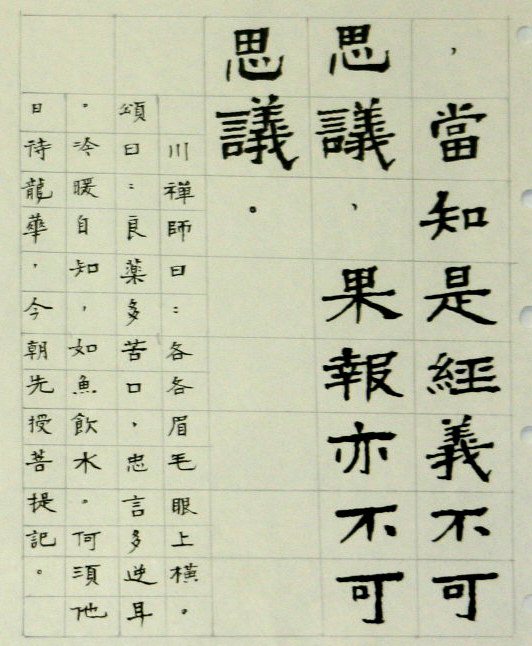 ，當知是經義不可
思議，果報亦不可
思議。
川禪師曰：各各眉毛眼上橫。
頌曰：良藥多苦口，忠言多逆耳
。冷暖自知，如魚飲水。何須他
日待龍華，今朝先授菩提記。